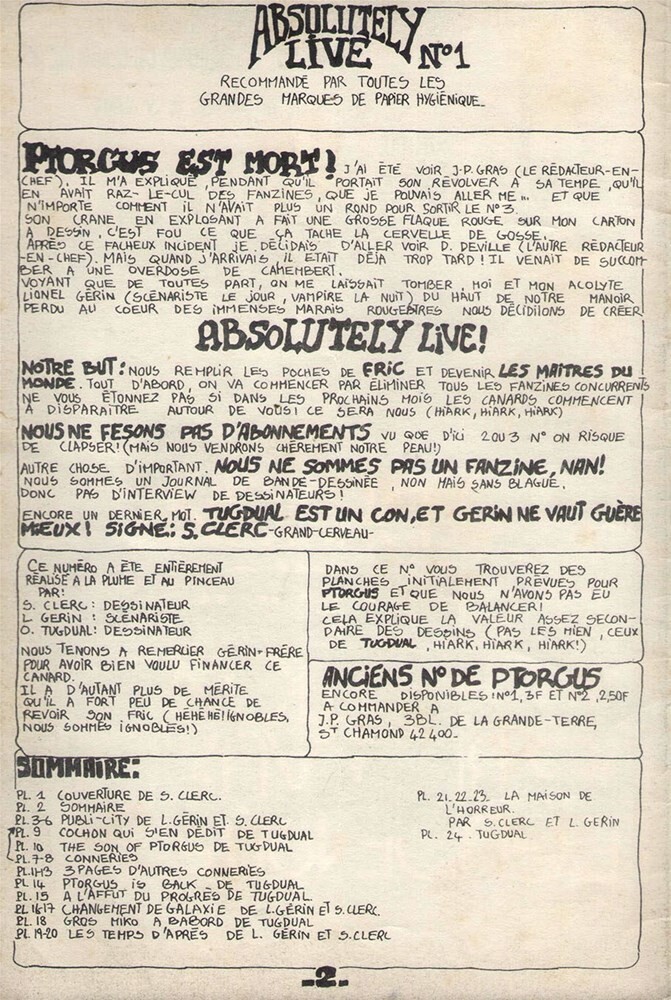 ABSOLUTELY
LIVE N°1
RECOMMANDÉ PAR TOUTES LES
GRANDES MARQUES DE PAPIER HYGIÉNIQUE_
PTORGUS EST MORT! J'AI ÉTÉ VOIR J.P. GRAS (LE RÉDACTEUR-EN-
CHEF). IL M'A EXPLIQUÉ, PENDANT QU'IL PORTAIT SON REVOLVER A SA TEMPE, QU'IL
EN AVAIT RAZ-LE-CUL DES FANZINES, QUE JE POUVAIS ALLER ME... ET QUE
N'IMPORTE COMMENT IL N'AVAIT PLUS UN ROND POUR SORTIR LE N°3.
SON CRANE EN EXPLOSANT A FAIT UNE GROSSE FLAQUE ROUGE SUR MON CARTON
A DESSIN, C'EST FOU CE QUE ÇA TACHE LA CERVELLE DE GOSSE.
APRÈS CE FACHEUX INCIDENT JE DÉCIDAIS D'ALLER VOIR D. DEVILLE (L'AUTRE RÉDACTEUR
-EN-CHEF). MAIS QUAND J'ARRIVAIS, IL ETAIT DÉJA TROP TARD! IL VENAIT DE SUCCOM-
BER A UNE OVERDOSE DE CAMEMBERT.
VOYANT QUE DE TOUTES PART, ON ME LAISSAIT TOMBER, MOI ET MON ACOLYTE
LIONEL GERIN (SCÉNARISTE LE JOUR, VAMPIRE LA NUIT) DU HAUT DE NOTRE MANOIR
PERDU AU COEUR DES IMMENSES MARAIS ROUGESTRES NOUS DÉCIDIONS DE CRÉER
ABSOLUTELY LIVE!
NOTRE BUT: NOUS REMPLIR LES POCHES DE FRIC ET DEVENIR LES MAITRES DU
MONDE. TOUT D'ABORD, ON VA COMMENCER PAR ÉLIMINER TOUS LES FANZINES CONCURRENTS
NE VOUS ÉTONNEZ PAS SI DANS LES PROCHAINS MOIS LES CANARDS COMMENCENT
A DISPARAITRE AUTOUR DE VOUS! CE SERA NOUS (HIARK, HIARK, HIARK)
NOUS NE FESONS PAS D'ABONNEMENTS VU QUE D'ICI 2 OU 3 N° ON RISQUE
DE CLAPSER! (MAIS NOUS VENDRONS CHÈREMENT NOTRE PEAU!)
AUTRE CHOSE D'IMPORTANT. NOUS NE SOMMES PAS UN FANZINE, NAN!
NOUS SOMMES UN JOURNAL DE BANDE-DESSINÉE, NON MAIS SANS BLAGUE.
DONC PAS D'INTERVIEW DE DESSINATEURS!
ENCORE UN DERNIER MOT. TUGDUAL EST UN CON, ET GERIN NE VAUT GUÈRE
MIEUX! SIGNÉ: S. CLERC-GRAND-CERVEAU-
CE NUMÉRO A ÉTÉ ENTIÈREMENT
RÉALISÉ A LA PLUME ET AU PINCEAU
PAR:
S. CLERC: DESSINATEUR
L GERIN: SCÉNARISTE
O. TUGDUAL: DESSINATEUR
NOUS TENONS A REMERCIER GÉRIN-FRÈRE
POUR AVOIR BIEN VOULU FINANCER CE
CANARD.
IL A D'AUTANT PLUS DE MÉRITE
QU'IL A FORT PEU DE CHANCE DE
REVOIR SON FRIC (HÉHÉHÉ! IGNOBLES,
NOUS SOMMES IGNOBLES!)
DANS CE N° VOUS TROUVEREZ DES
PLANCHES INITIALEMENT PRÉVUES POUR
PTORGUS ET QUE NOUS N'AVONS PAS EU
LE COURAGE DE BALANCER!
CELA EXPLIQUE LA VALEUR ASSEZ SECON-
DAIRE DES DESSINS (PAS LES MIEN, CEUX
DE TUGDUAL, HIARK, HIARK, HIARK!)
ANCIENS N° DE PTORGUS
ENCORE DISPONIBLES: N°1, 3F ET N°2, 2,50F
A COMMANDER A
J.P. GRAS, 3BL. DE LA GRANDE-TERRE,
ST CHAMOND 42400.
SOMMAIRE:
PL. 1 COUVERTURE DE S. CLERC.
PL. 2 SOMMAIRE
PL. 3-6 PUBLI-CITY DE L. GÉRIN ET S. CLERC
PL. 9 COCHON QUI S'EN DÉDIT DE TUGDUAL
PL. 10 THE SON OF PTORGUS DE TUGDUAL
PL. 7-8 CONNERIES
PL. 11-13 3 PAGES D'AUTRES CONNERIES
PL 14 PTORGUS IS BACK - DE TUGDUAL
PL. 15 A L'AFFUT DU PROGRÈS DE TUGDUAL.
PL 16-17 CHANGEMENT DE GALAXIE DE L. GÉRIN ET S. CLERC.
PL. 18 GROS MIKO A BABORD DE TUGDUAL
PL. 19-20 LES TEMPS D'APRÈS DE L. GÉRIN ET S. CLERC
PL. 21_22_23_ LA MAISON DE
L'HORREUR.
PAR S. CLERC ET L. GERIN
PL. 24_ TUGDUAL
_2_